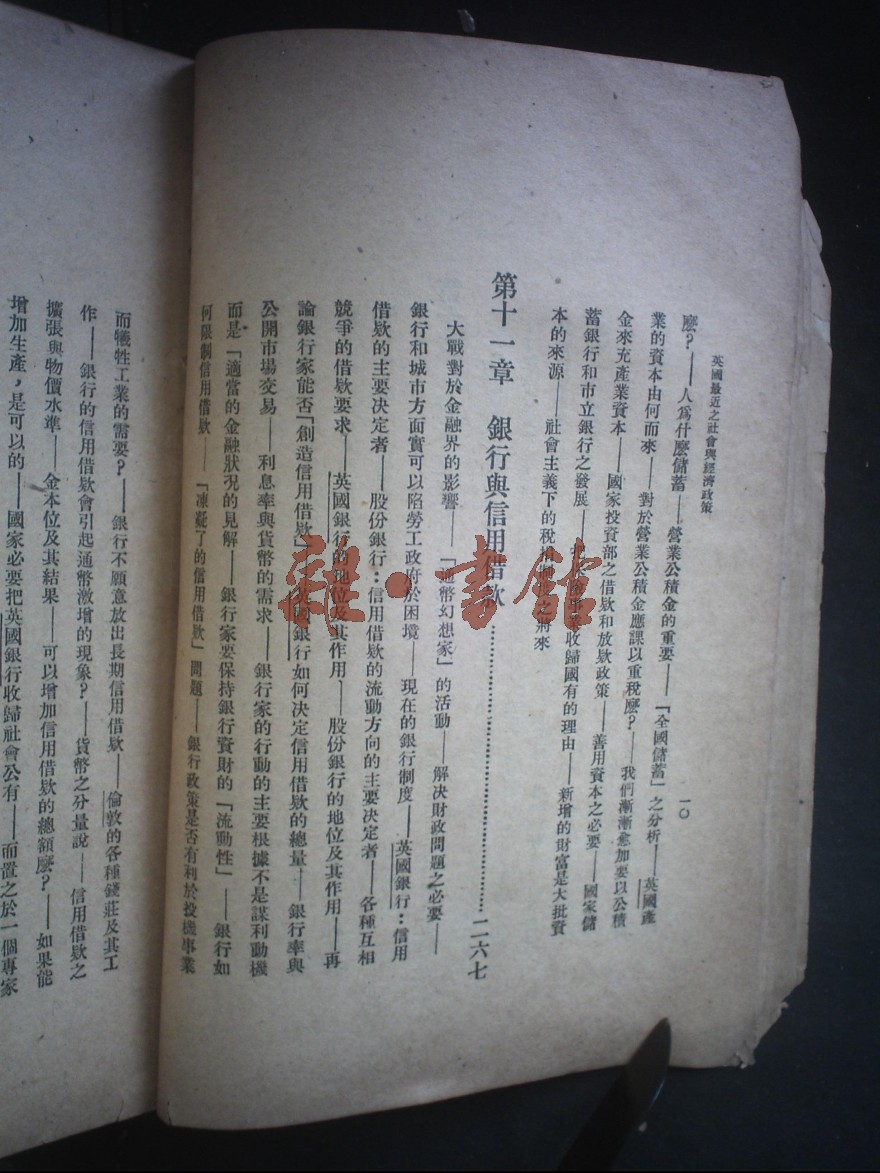 英國最近之社會與經濟政策
一〇
麽?——人爲什麽儲蓄——營業公積金的重要——「全國儲蓄」之分析——英國產
業的資本由何而來——對於營業公積金應課以重稅麽?——我們漸漸愈加要以公積
金來充產業資本——國家投資部之借欵和放欵政策——善用資本之必要——國家儲
蓄銀行和市立銀行之發展——事業收歸國有的理由——新增的財富是大批資
本的來源——社會主義下的稅之將來
第十一章 銀行與信用借欵……二六七
大戰對於金融界的影響——「通幣幻想家」的活動——解決財政問題之必要——
銀行和城市方面實可以陷勞工政府於困境——現在的銀行制度——英國銀行:信用
借欵的主要決定者——股份銀行:信用借欵的流動方向的主要決定者——各種互相
競爭的借欵要求——英國銀行的地位及其作用、——股份銀行的地位及其作用——再
論銀行家能否「創造信用借欵」——英國銀行如何決定信用借欵的總量——銀行率與
公開市場交易——利息率與貨幣的需求——銀行家的行動的主要根據不是謀利動機
而是「適當的金融狀况的見解——銀行家要保持銀行資財的「流動性」——銀行如
何限制信用借欵——「凍凝了的信用借欵」問題——銀行政策是否有利於投機事業
而犧牲工業的需要?——銀行不願意放出長期信用借欵——倫敦的各種錢莊及其工
作——銀行的信用借欵會引起通幣激增的現象?——貨幣之分量說——信用借欵之
擴張與物價水準——金本位及其結果——可以增加信用借欵的總額麽?——如果能
增加生產,是可以的——國家必要把英國銀行收歸社會公有——而置之於一個專家
雜·書館